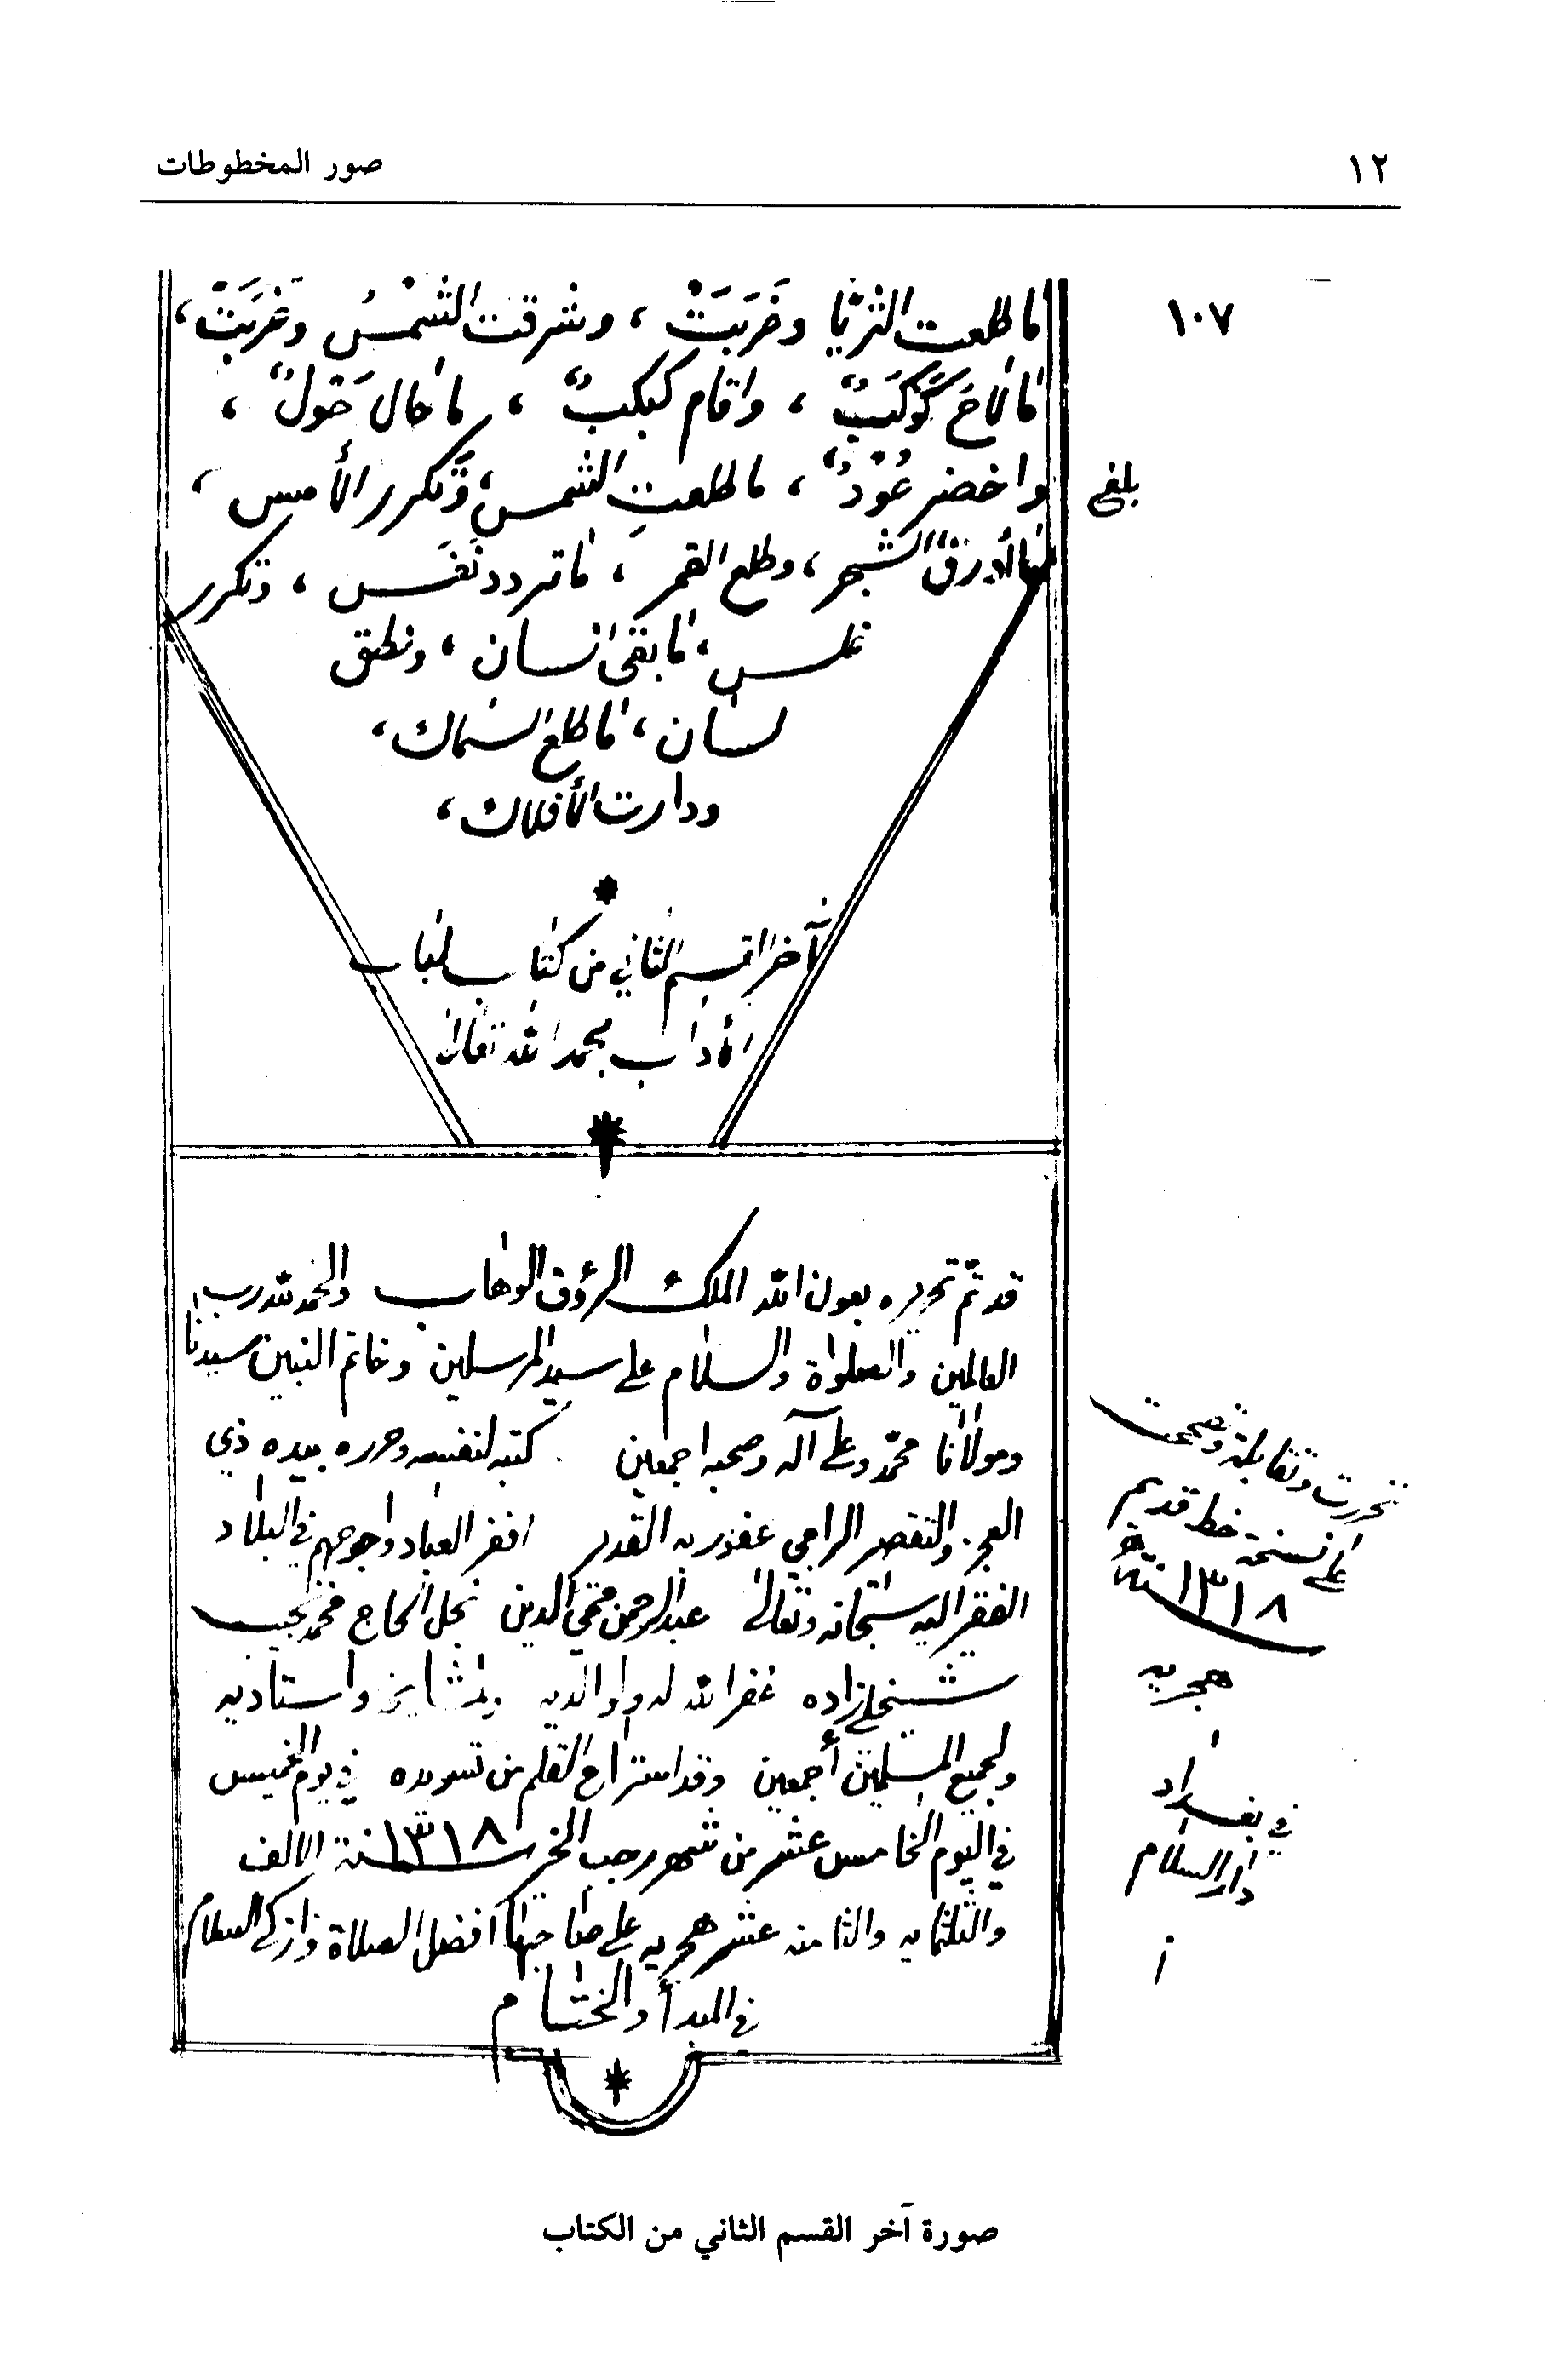 ١٢
صور المخطوطات
١٠٧
ما طلعت الثريا وغَرَبَتْ ، وشرقت الشمْسُ وغَرَبَتْ ،
ما لاحَ كَوْكَبٌ ، واقام كبكبٌ ، ما حال حَوْلٌ ،
واخضر عُوْدٌ ، ما طلعتِ الشمس ، وتكرر الأمس ،
بلغ
ما أورق الشجر ، وطلع القمر ، ما تردد نَفَس ، وتكرر
غلس ، ما بقى انسان ، ونطق
لسان ، ما طلع السماك ،
ودارت الأفلاك ،
آخر القسم الثاني من كتاب لباب
الآداب بحمد الله تعالى
قد تم تحريره بعون الله الملك الرؤف الوهاب والحمد لله رب
العالمين والصلواة والسلام على سيد المرسلين وخاتم النبين سيدنا
ومولانا محمد وعلى آله وصحبه اجمعين كتبه لنفسه وحرره بيده ذي
العجز والتقصير الراجي عفو ربه القدير افقر العباد واحوجهم في البلاد
الفقير اليه سبحانه وتعالى عبد الرحمن محي الدين نجل الحاج محمد نجيب
شيخلي زاده غفر الله له ولوالديه ومشايخه واستاديه
ولجميع المسلمين أجمعين وقد استراح القلم من تسويده في يوم الخميس
في اليوم الخامس عشر من شهر رجب الخير سنة ١٣١٨ الالف
والثلثمايه والثامنه عشر هجريه على صاحبها افضل الصلاة وازكى السلام
في المبدأ والختام
تحررت وتقابلت وتصححت
على نسخة خط قديم
سنة ١٣١٨
هجريه
في بغداد
دار السلام
صورة آخر القسم الثاني من الكتاب